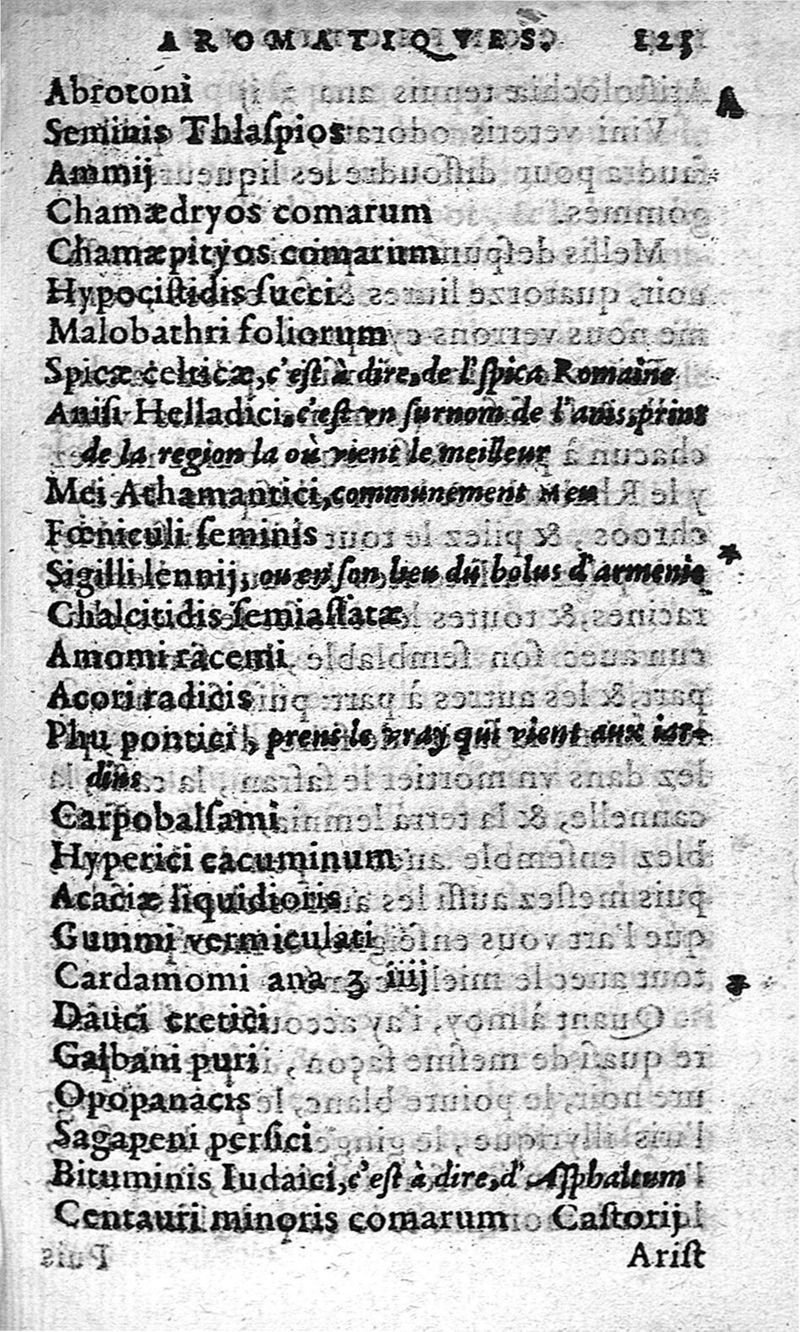 AROMATIQVES. 125
Abrotoni
Seminis Thlaſpios
Ammij
Chamædryos comarum
Chamæpityos comarum
Hypociſtidis ſucci
Malobathri foliorum
Spicæ celticæ, c'eſt à dire, de l'ſpica Romaine
Aniſi Helladici, c'eſt vn ſurnom de l'anis, prins
de la region la où vient le meilleur
Mei Athamantici, communément Meu
Fœniculi ſeminis
Sigilli lennij, ou en ſon lieu du bolus d'armenie
Chalcitidis ſemiaſſatæ
Amomi racemi
Acori radicis
Phu pontici, prens le vray qui vient aux iar-
dins
Carpobalſami
Hyperici cacuminum
Acaciæ liquidioris
Gummi vermiculati
Cardamomi ana ʒ iiij
Dauci cretici
Galbani puri
Opopanacis
Sagapeni perſici
Bituminis Iudaici, c'eſt à dire, d'Aſphaltum
Centauri minoris comarum Caſtorij
Ariſt